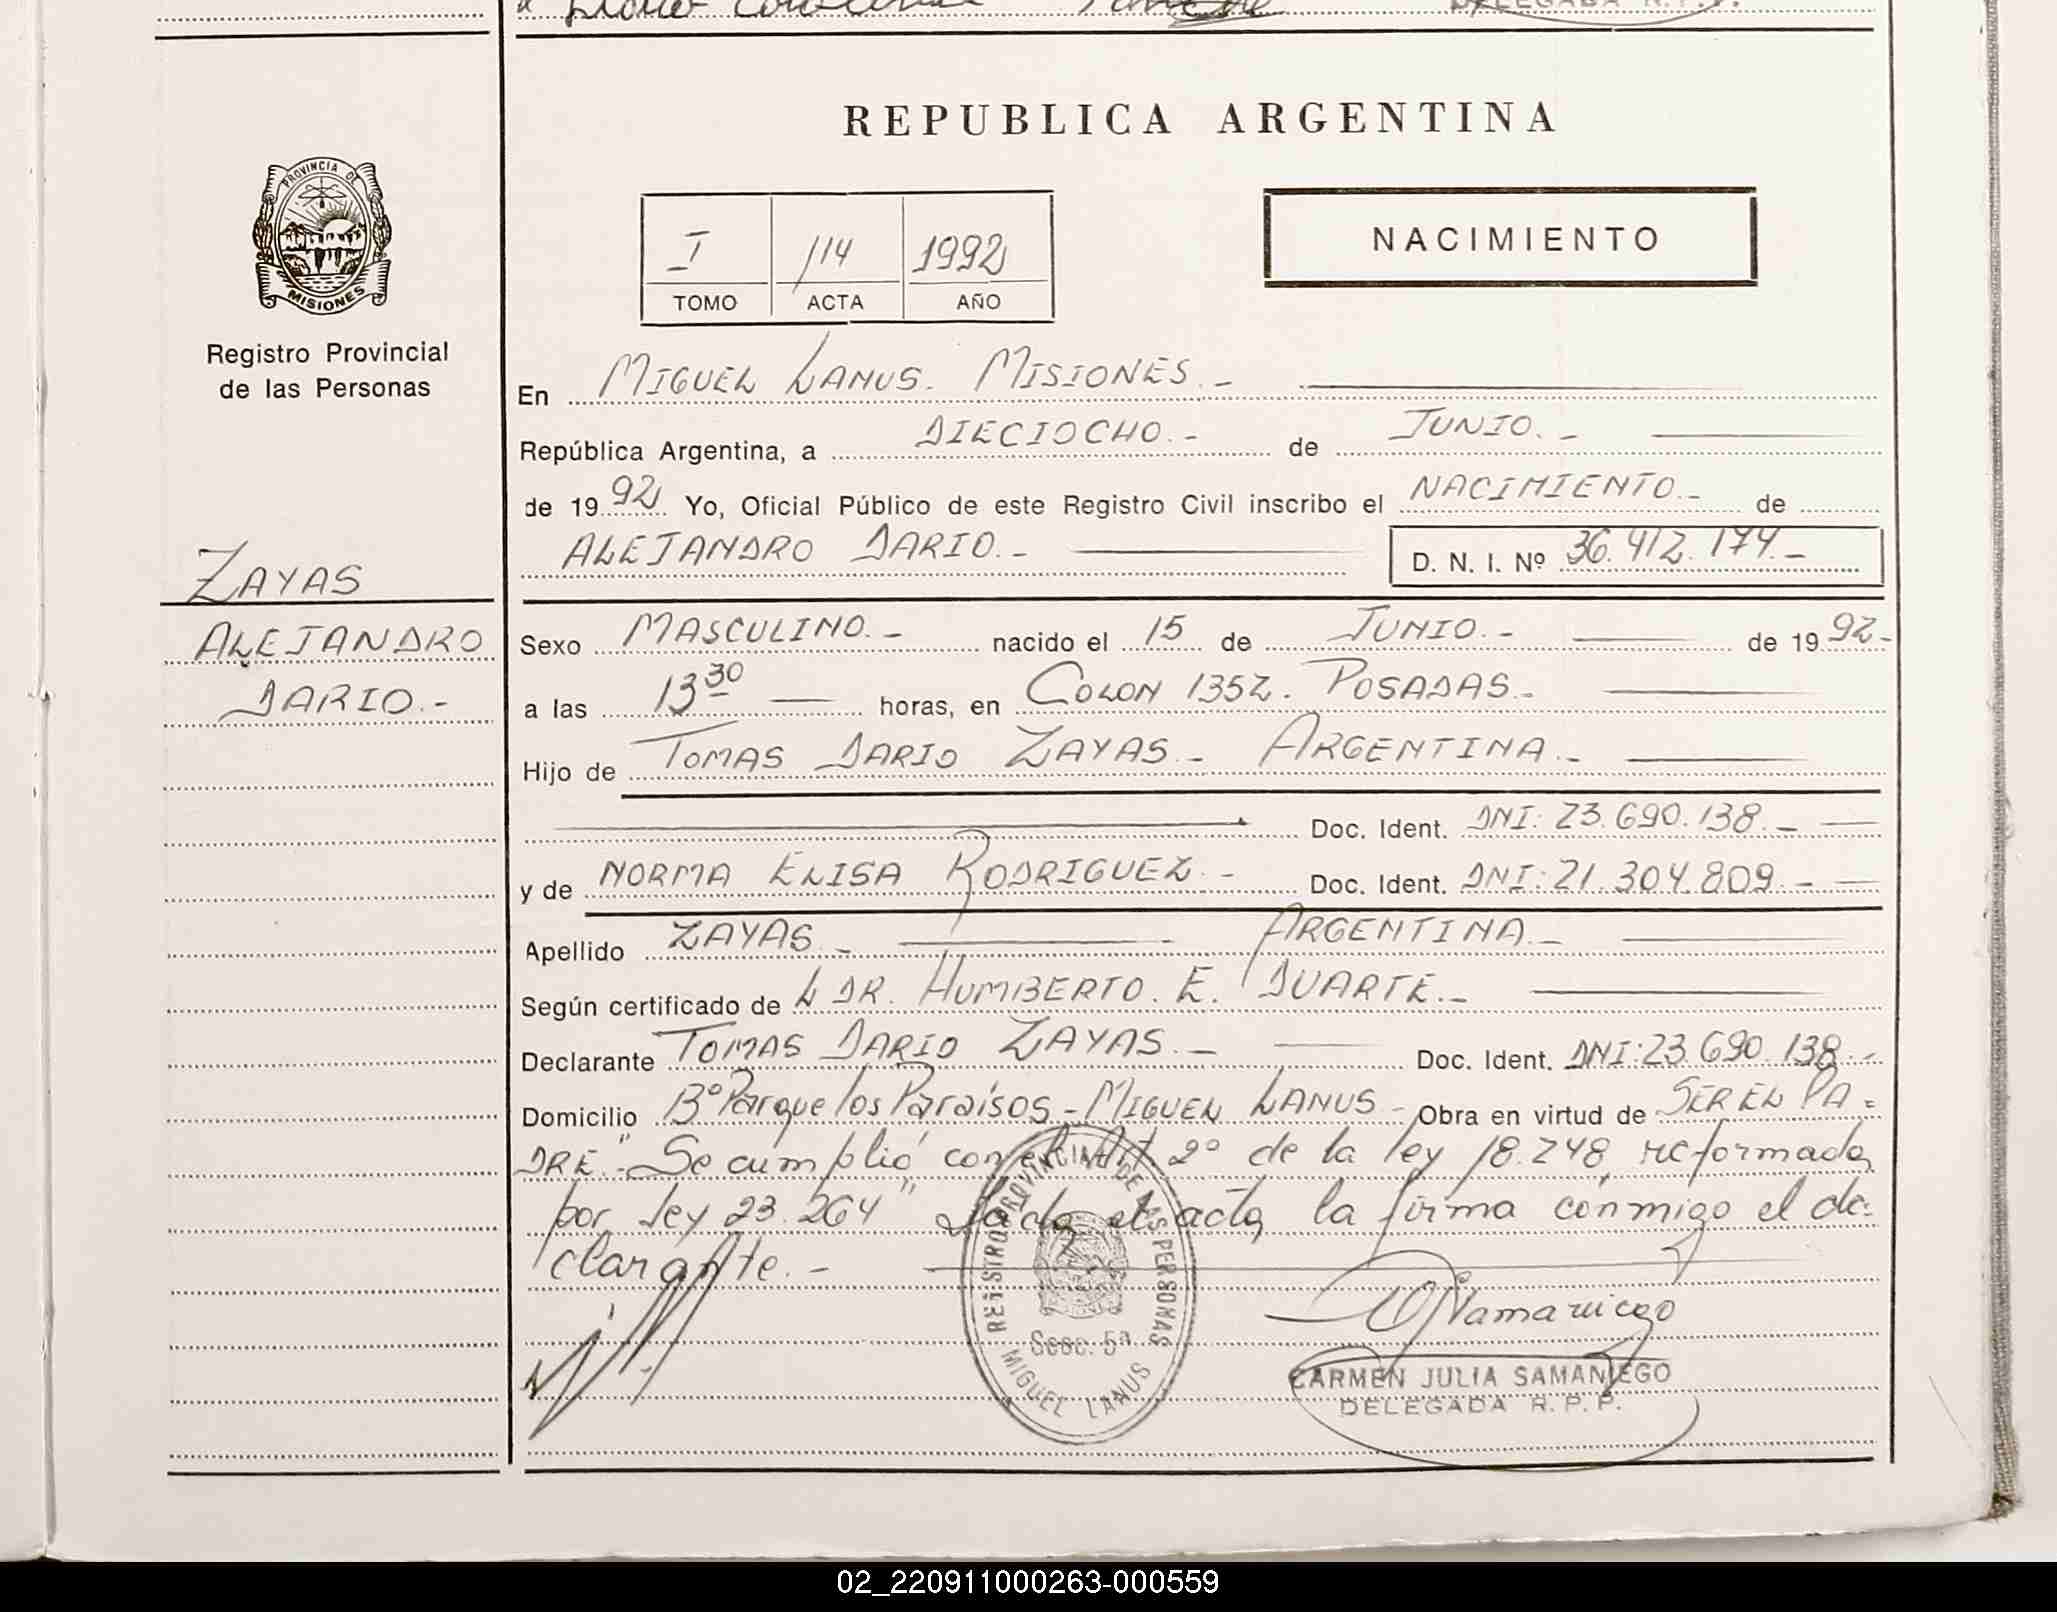 DELEGADA R.P.P.
REPUBLICA ARGENTINA
PROVINCIA DE
MISIONES
Registro Provincial
de las Personas
NACIMIENTO
I 114 1992
TOMO ACTA AÑO
En MIGUEL LANUS. MISIONES.-
República Argentina, a DIECIOCHO.- de JUNIO.-
de 1992 Yo, Oficial Público de este Registro Civil inscribo el NACIMIENTO.- de
ALEJANDRO DARIO.- D. N. I. Nº 36.412.174.-
ZAYAS
ALEJANDRO
DARIO.-
Sexo MASCULINO.- nacido el 15 de JUNIO.- de 1992-
a las 13 30 horas, en COLON 1352. POSADAS.-
Hijo de TOMAS DARIO ZAYAS.- ARGENTINA.-
Doc. Ident. DNI: 23.690.138.-
y de NORMA ELISA RODRIGUEZ.- Doc. Ident. DNI: 21.304.809.-
Apellido ZAYAS.- ARGENTINA.-
Según certificado de L DR. HUMBERTO. E. DUARTE.-
Declarante TOMAS DARIO ZAYAS.- Doc. Ident. DNI: 23.690.138.-
Domicilio Bº Parque los Paraísos - MIGUEL LANUS - Obra en virtud de SER EL PA=
DRE.- "Se cumplió con el Art. 2º de la ley 18.248, reformada
por ley 23.264" Leída el acta, la firma conmigo el de=
clarante.-
REGISTRO PROVINCIAL DE LAS PERSONAS
Secc. 5ª
MIGUEL LANUS
CARMEN JULIA SAMANIEGO
DELEGADA R.P.P.
02_220911000263-000559